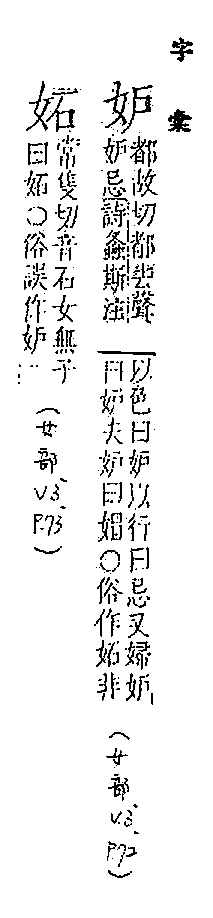 字彙
妒
都故切都去聲
妒忌詩螽斯注
以色曰妒以行曰忌又婦妒
曰妒夫妒曰媢○俗作妬非
(女部、V.3、P.72)
妬
常隻切音石女無子
曰妬○俗誤作妒
(女部、V.3、P.73)